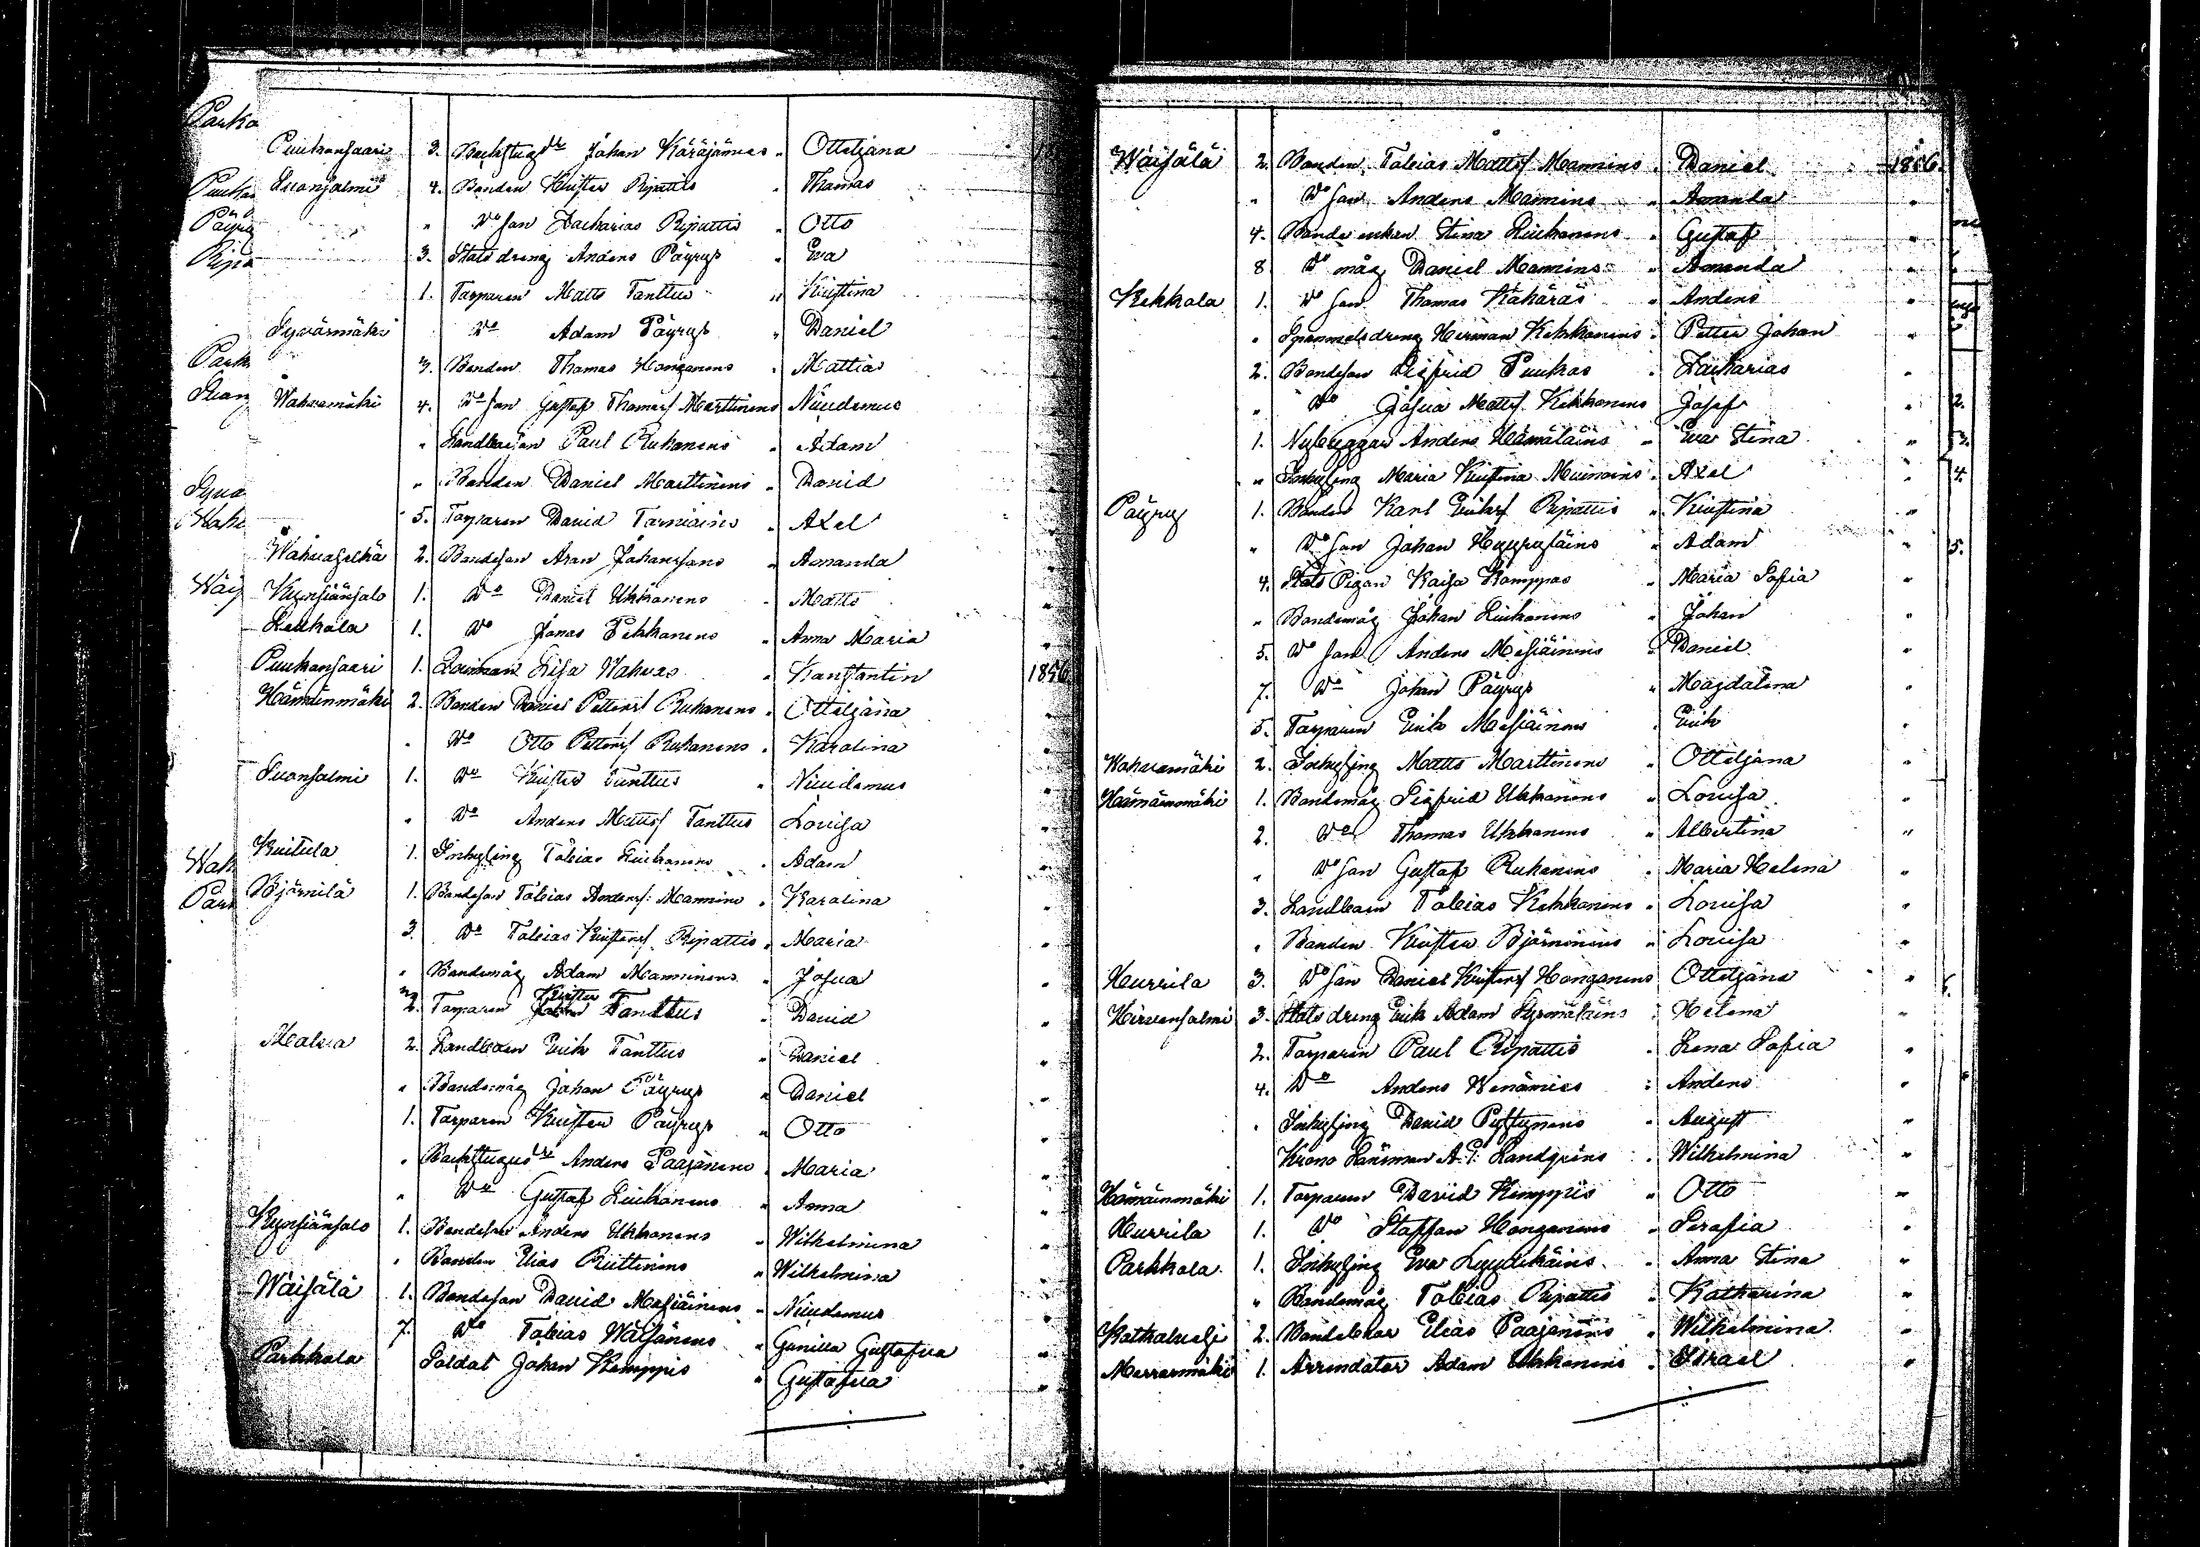 Puukonsaari 3. Backstugu Johan Käräjämäes " Ottiljana
Suonsalmi 4. Bonden Krister Ripattis " Thomas
" Do Son Zacharias Ripattis " Otto
3. Stats dreng Anders Päyrys " Eva
1. Torparen Matts Tanttus " Kristina
Syväsmäki Do Adam Päyrys " Daniel
3. Bonden Thomas Honganens " Mattias
Wahvamäki 4. Do Son Gustaf Thomass Marttinens Nicodemus
" Landboson Paul Ruhanens " Adam
" Bonden Daniel Marttinens " David
5. Torparen David Tarniains " Axel
Wahvaselkä 2. Bondeson Aron Johanssons " Amanda
Kynsiänsalo 1. Do Daniel Ukkonens " Matts
Laukala 1. Do Jonas Pekkanens " Anna Maria
Puukonsaari 1. Qvinnan Lisa Wahvas " Konstantin 1856
Hämäinmäki 2. Bonden Daniel Petterss Ruhanens " Ottiljana "
" Do Otto Petterss Ruhanens " Karolina "
Suonsalmi 1. Do Krister Tanttus " Nicodemus "
" Do Anders Mattss Tanttus Lovisa "
Kuitula 1. Inhysing Tobias Liukonens " Adam "
Björnilä 1. Bondeson Tobias Anderss: Mannins " Karolina "
3. Do Tobias Kristerss Ripattis " Maria "
" Bondemåg Adam Manninens " Josua "
2. Torparen Krister Tanttus " David "
Malva 2. Landboen Erik Tanttus " Daniel "
" Bondemåg Johan Päyrys " Daniel "
1. Torparen Krister Päyrys " Otto "
" Backstugu Anders Paajanens " Maria "
" Do Gustaf Liukonens " Anna "
Kynsiänsalo 1. Bondeson Anders Ukkonens " Wilhelmina "
" Bonden Elias Riittinens " Wilhelmina "
Wäisälä 1. Bondeson David Mesiäinens " Nicodemus "
7. Do Tobias Wäisänens " Gunilla Gustafva "
Parkkola Soldat Johan Kemppis " Gustafva "
Wäisälä 2. Bonden Tobias Mattss Mannins " Daniel 1856.
" Do Son Anders Mannins " Amanda "
4. Bonde enkan Stina Liukonens " Gustaf "
8 Do måg Daniel Mannins " Amanda "
Kekkola 1. Do Son Thomas Kähäräs " Anders "
" Spannmålsdreng Herman Kekkonens " Petter Johan "
2. Bondeson Sigfrid Puukas " Zacharias "
" Do Josua Mattss Kekkonens Josef "
1. Nybyggar Anders Hämäläins " Eva Stina "
" Inhysing Maria Kristina Muinoins " Axel "
Päyry 1. Bonden Karl Erikss Ripattis " Kristina "
" Do Son Johan Hyyryläins " Adam "
4. Stats Pigan Kaisa Komppas " Maria Sofia "
" Bondemåg Johan Liukonens " Johan "
5. Do Son Anders Mesiäinens " Daniel "
7. Do Johan Päyrys " Magdalena "
5. Torparen Erik Mesiäinens " Erik "
Wahvamäki 2. Inhysing Matts Marttinens " Ottiljana "
Hämäinmäki 1. Bondemåg Sigfrid Ukkonens " Lovisa "
2. Do Thomas Ukkonens " Albertina "
" Do Son Gustaf Ruhanens " Maria Helena "
3. Landboen Tobias Kekkonens " Lovisa "
" Bonden Krister Björninens " Lovisa "
Hurrila 3. Do Son Daniel Kristerss Honganens Ottiljana "
Hirvensalmi 3. Stats dreng Erik Adam Hyrmäläins " Helena "
2. Torparen Paul Ripattis " Lena Sofia "
4. Do Anders Wenämies " Anders "
" Inhysing David Pyttynens " August "
Krono Länsman A. P. Landgrens " Wilhelmina "
Hämäinmäki 1. Torparen David Kemppis " Otto "
Hurrila 1. Do Staffan Honganens " Serafia "
Parkkola 1. Inhysing Eva Lyydikäins " Anna Stina "
" Bondemåg Tobias Ripattis " Katharina "
Kotkatvesi 2. Bondebror Elias Paajanens " Wilhelmina "
Merrasmäki 1. Arrendator Adam Ukkonens " Israel "